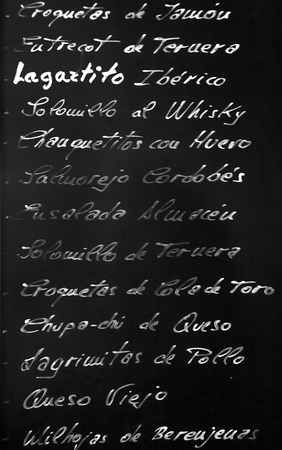 - Croquetas de Jamón
- Entrecot de Ternera
- Lagartito Ibérico
- Solomillo al Whisky
- Chanquetitos con Huevo
- Salmorejo Cordobés
- Ensalada Almacén
- Solomillo de Ternera
- Croquetas de Cola de Toro
- Chupa-chi de Queso
- Lagrimitas de Pollo
- Queso Viejo
- Milhojas de Berenjenas